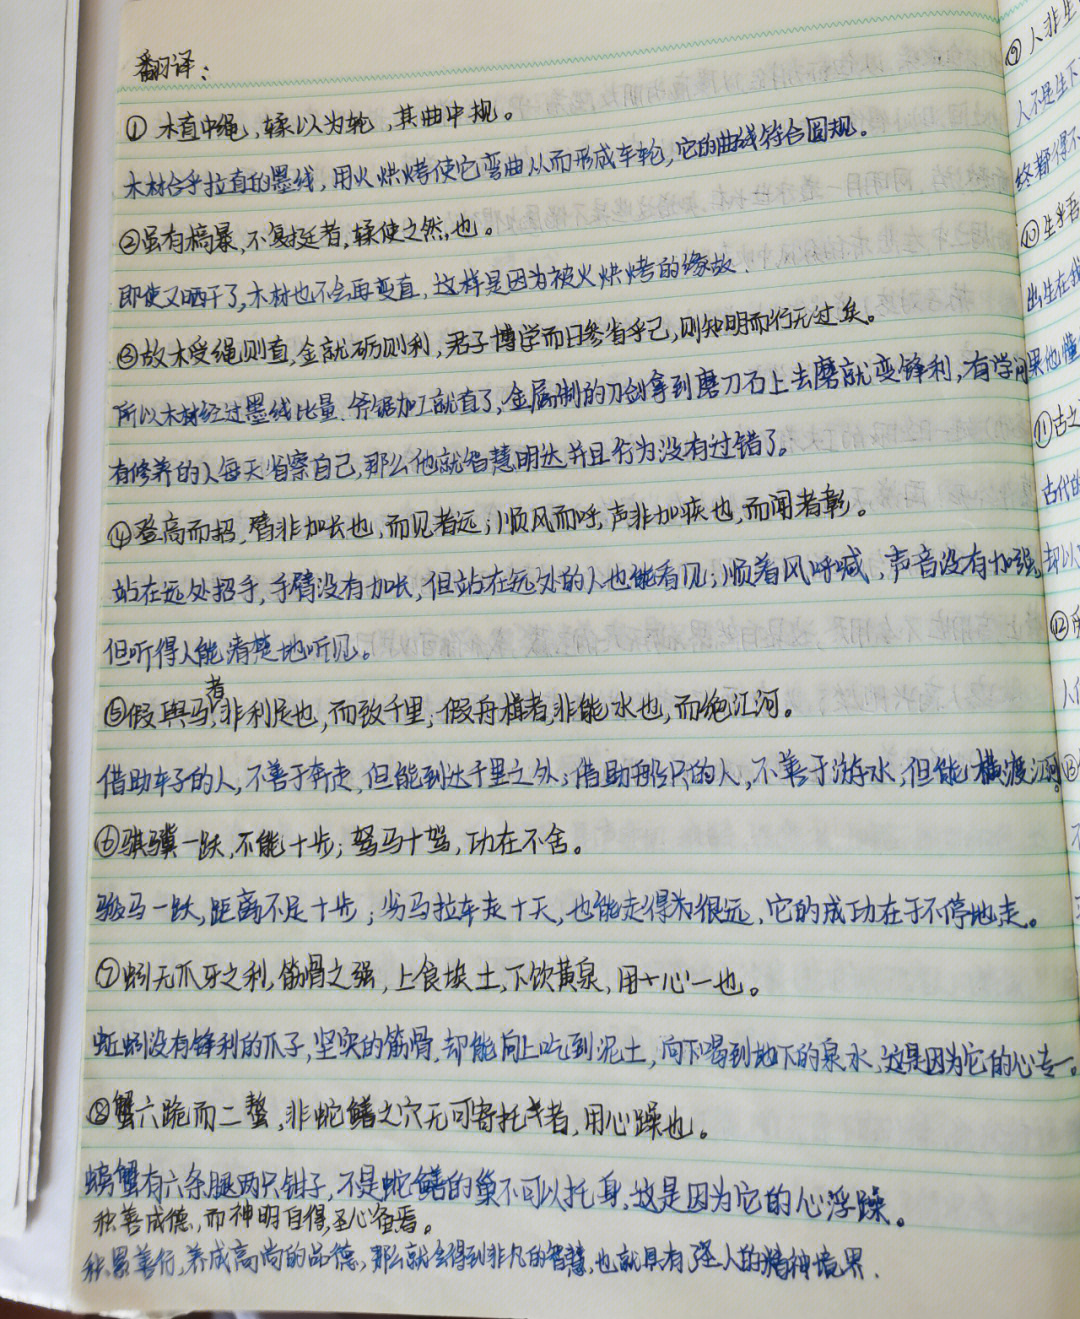 翻译:
① 木直中绳,𫐓以为轮,其曲中规。
木材合乎拉直的墨线,用火烘烤使它弯曲从而形成车轮,它的曲线符合圆规。
②虽有槁暴,不复挺者,𫐓使之然,也。
即使又晒干了,木材也不会再变直,这样是因为被火烘烤的缘故.
③故木受绳则直,金就砺则利,君子博学而日参省乎己,则知明而行无过矣。
所以木材经过墨线比量、斧锯加工就直了,金属制的刀剑拿到磨刀石上去磨就变锋利,有学问
有修养的人每天省察自己,那么他就智慧明达并且行为没有过错了。
④登高而招,臂非加长也,而见者远;顺风而呼,声非加疾也,而闻者彰。
站在远处招手,手臂没有加长,但站在远处的人也能看见;顺着风呼喊,声音没有加强
但听得人能清楚地听见。
⑤假舆马者,非利足也,而致千里;假舟楫者,非能水也,而绝江河。
借助车子的人,不善于奔走,但能到达千里之外;借助船只的人,不善于游水,但能横渡江河。
⑥骐骥一跃,不能十步;驽马十驾,功在不舍。
骏马一跃,距离不足十步;劣马拉车走十天,也能走得为很远,它的成功在于不停地走。
⑦蚓无爪牙之利,筋骨之强,上食埃土,下饮黄泉,用十心一也。
蚯蚓没有锋利的爪子,坚实的筋骨,却能向上吃到泥土,向下喝到地下的泉水,这是因为它的心专一。
⑧蟹六跪而二螯,非蛇鳝之穴无可寄托者,用心躁也。
螃蟹有六条腿两只钳子,不是蛇鳝的巢不可以托身,这是因为它的心浮躁。
积善成德,而神明自得,圣心备焉。
积累善行,养成高尚的品德,那么就会得到非凡的智慧,也就具有圣人的精神境界.
⑨人非生
人不是生下
终都得不
⑩生乎吾
出生在我
果他懂
⑪古之
古代的
却以
⑫所
人们
⑬